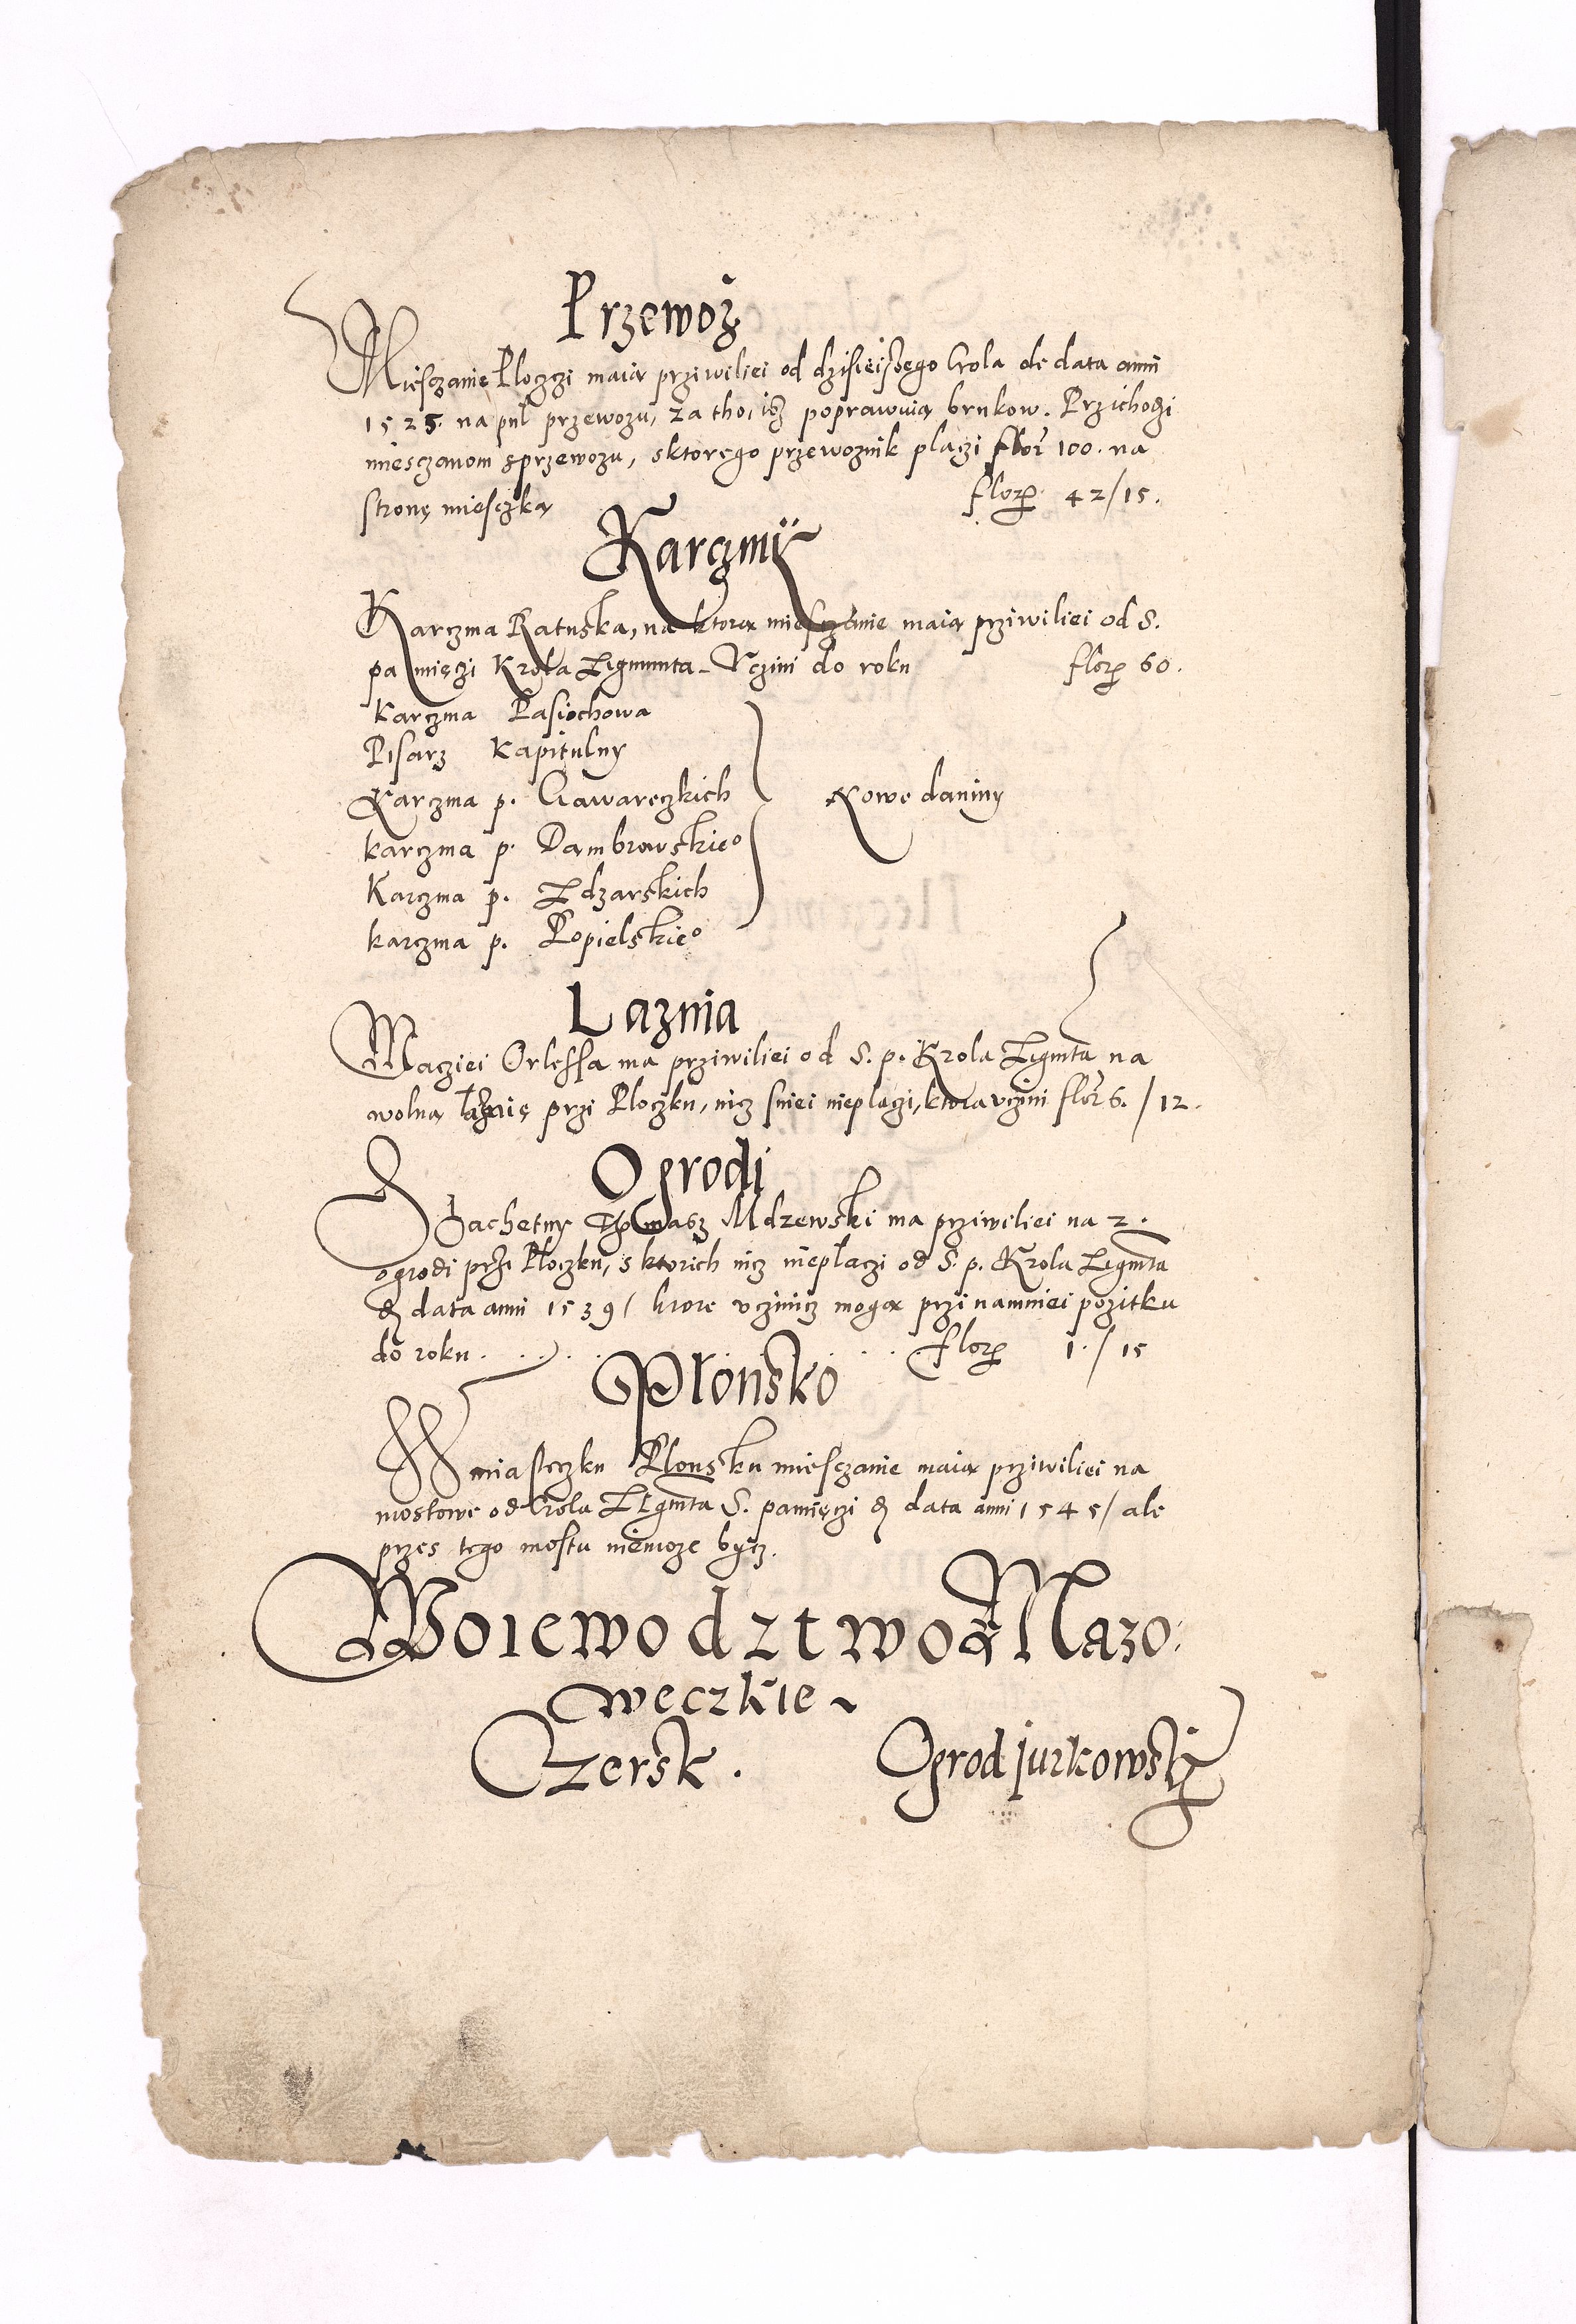 Przewoz
Miesczanie Ploczczi maią prziwiliei od dzisieiszego Crola de data anni
1525. na puł przewozu, za tho, isz poprawuią brukow. Przichodzi
miesczanom sprzewozu, sktorego przewoznik placzi flor 100. na
stronę mieisczką flor 42/15.
Karczmÿ
Karczma Ratuska, na ktorą miesczanie maią prziwiliei od S.
pamięczi Krola Zigmunta Vczini do roku flor 60.
Karczma Pasiochowa
Pisarz Kapitulny
Karczma p. Gawareczkich Nowe daniny
karczma p. Dambrowskieo
Karczma p. Zdzarskich
karczma p. Popielskieo
Laznia
Macziei Orlessa ma prziwiliei od S. p. Krola Zigmta na
wolną łaznię przi Ploczku, nicz sniei nieplaczi, ktora vczini flor 6. / 12.
Ogrodi
Szlachetny Thomasz Mdzewski ma prziwiliei na 2.
ogrodi przi Płoczku, s ktorich nicz niepłaczi od S. p. Krola Zigmta
de data anni 1539/ ktore vczinicz mogą przinamniei pozitku
do roku . . . . . flor 1. / 15
Płonsko
W miasteczku Plonsku miesczanie maią prziwiliei na
mostowe od Crola Zigmta S. pamięczi de data anni 1545/ ale
przes tego mostu niemoze bycz.
Woiewodztwo Mazo:
weczkie
Czersk. Ogrod jurkowskj